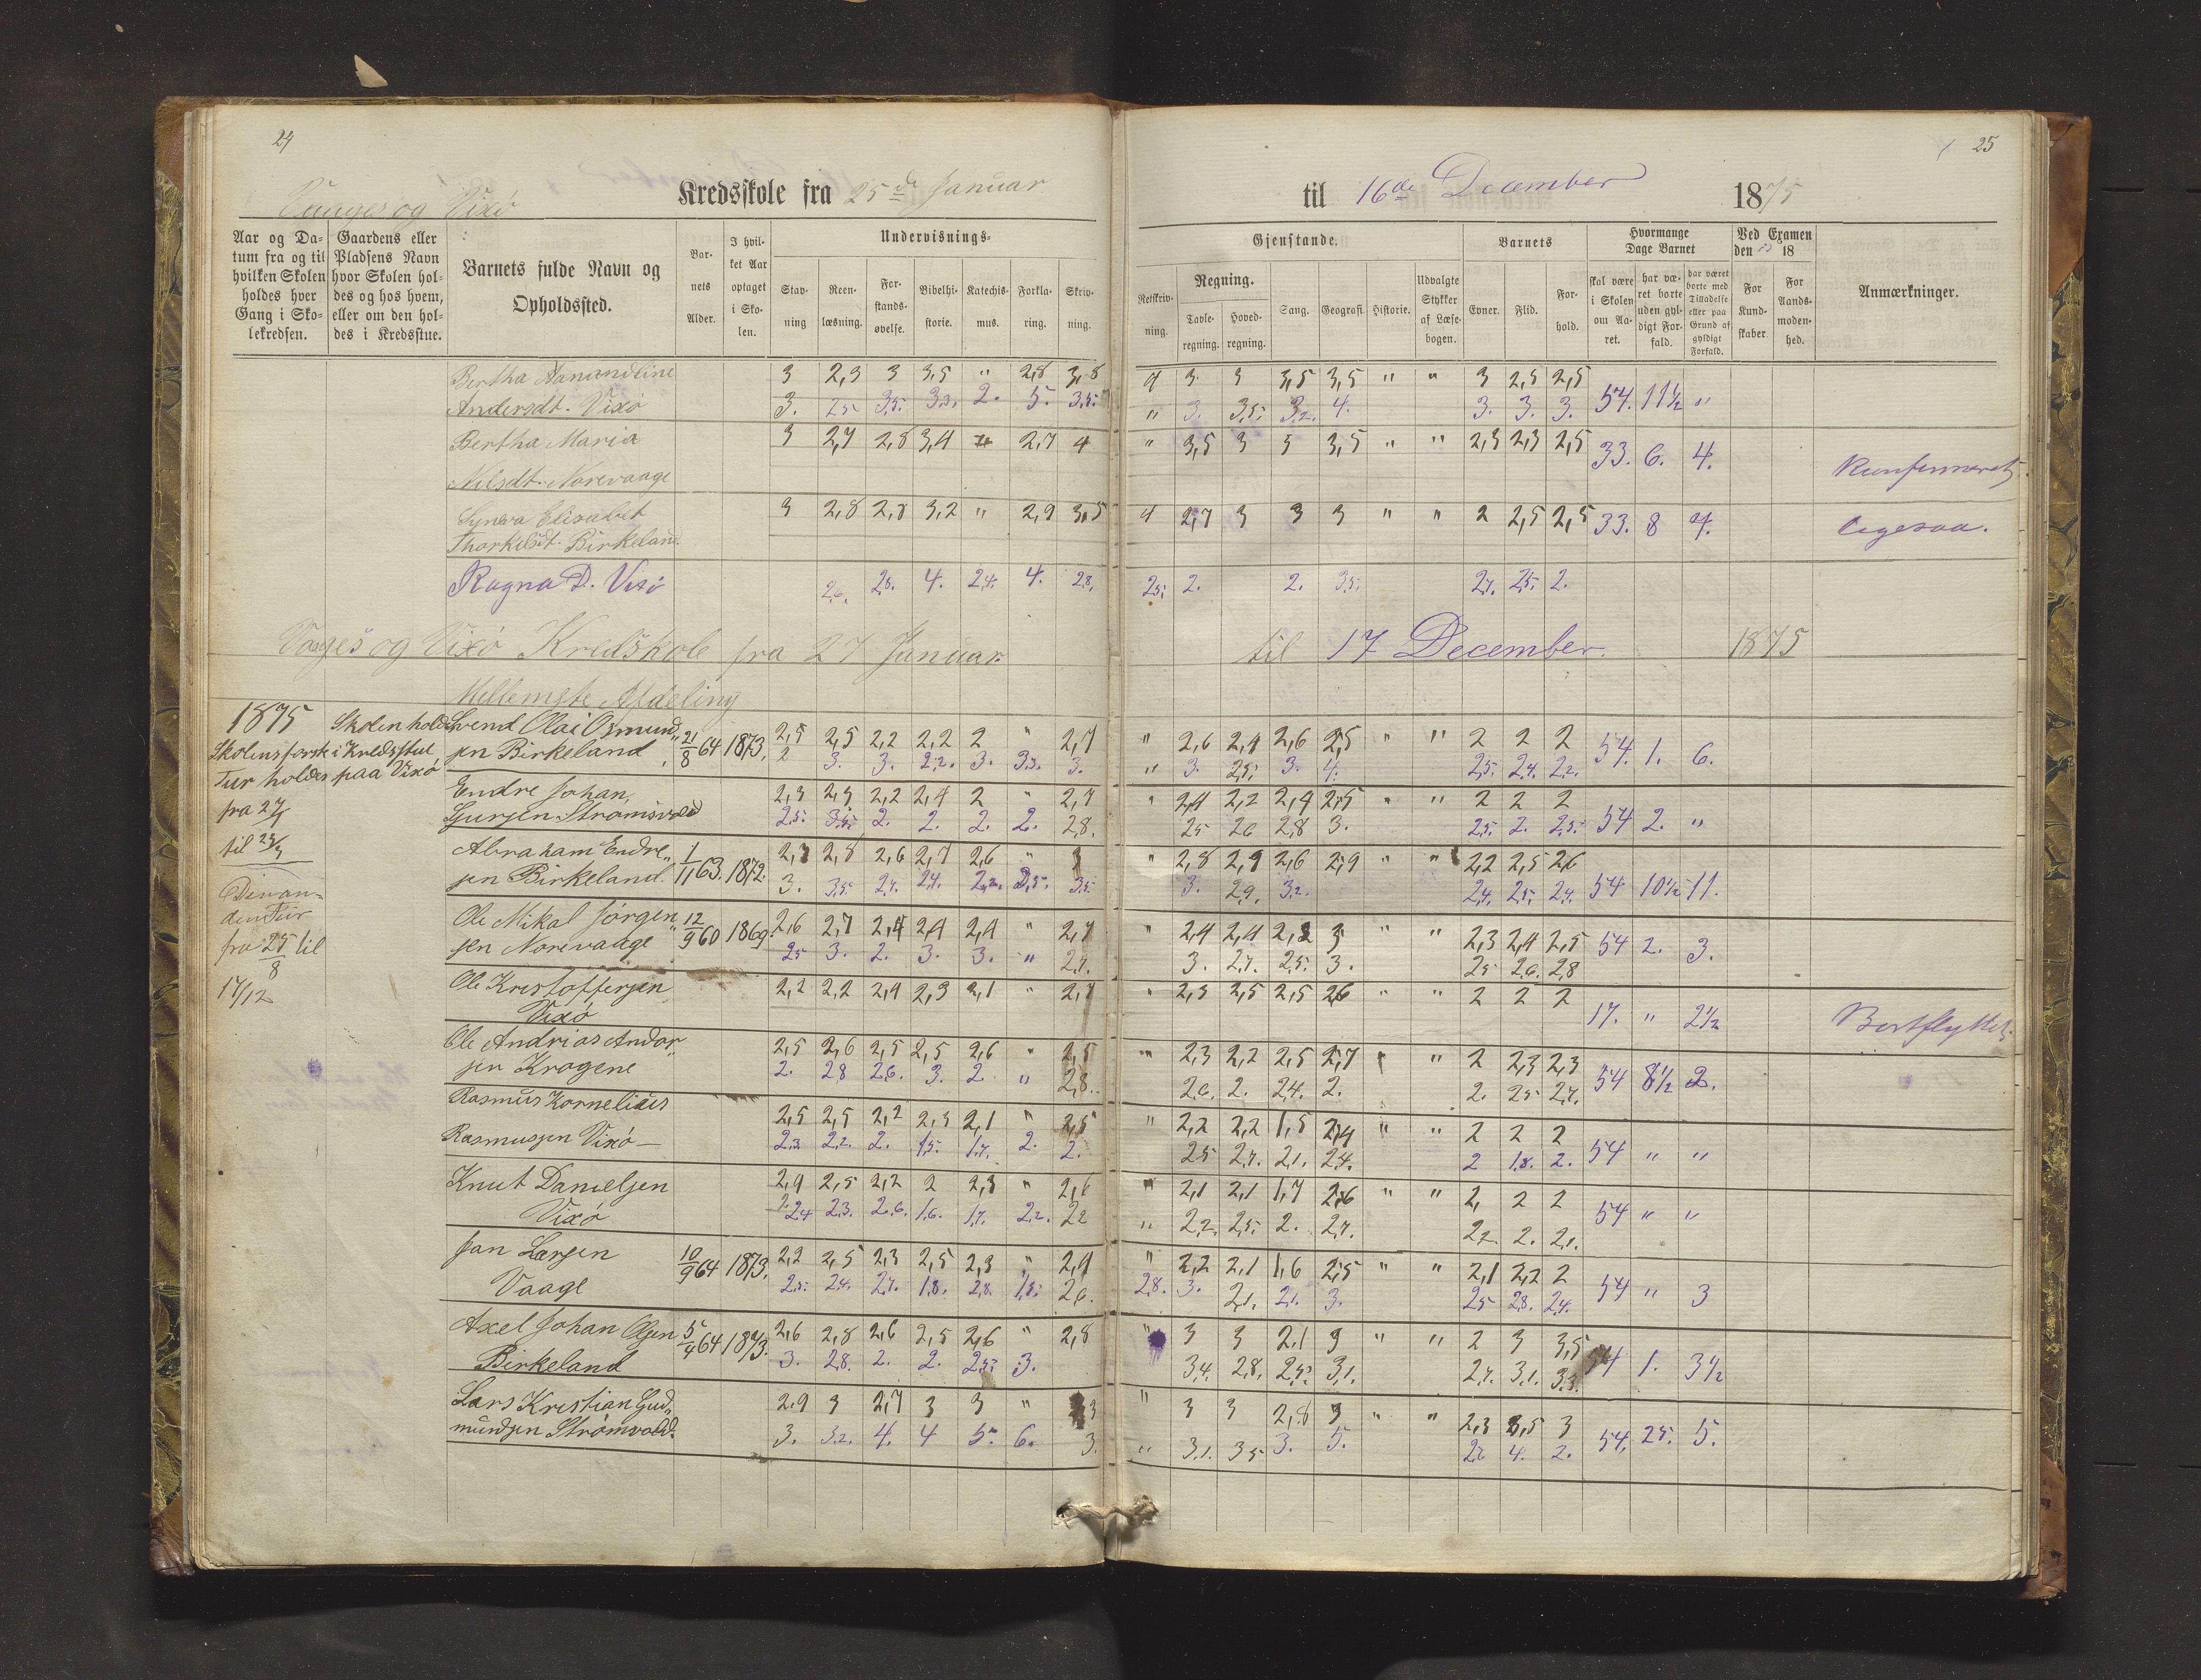 24
Vaages og Vixö Kredsskole fra 25de Januar
Aar og Da-
tum fra og til
hvilken Skolen
holdes hver
Gang i Sko-
lekredsen.
Gaardens eller
Pladsens Navn
hvor Skolen hol-
des og hos hvem,
eller om den hol-
des i Kredsstue.
Barnets fulde Navn og
Opholdssted.
Bar-
nets
Alder.
I hvil-
ket Aar
optaget
i Sko-
len.
Undervisnings-
Stav-
ning
Reen-
læsning.
For-
stands-
øvelse.
Bibelhi-
storie.
Katechis-
mus.
Forkla-
ring.
Skriv-
ning.
Bertha Amandline 3 2,3 3 3,5 " 2,8 3,8
Andersdt. Vixö 3. 2,5. 3,5. 3,3. 2. 5. 3,5.
Bertha Maria 3 2,7 2,8 3,4 " 2,7 4
Nilsdt. Norevaage
Synva Elisabet 3 2,8 2,8 3,2 " 2,9 3,5
Thorkilsdt. Birkeland
Ragna D. Vixö 2,6. 2,8. 4. 2,4. 4. 2,8.
Vaages og Vixö Kredskole fra 27 Januar
Mellemste Afdeling
1875 Skolen holdes Svend Olai Osmund„ 21/8 64 1873. 2,5 2,5 2,2 2,2 2 " 2,7
Skolens første i Kredsstue sen Birkeland 2 3. 3. 2,2. 3. 3,3. 3.
Tur holdes paa Vixö
Endre Johan 2,3 2,3 2,2 2,4 2 " 2,7
fra 27/1 Sjursen Strømsvold 2,5. 3,5. 2. 2. 2. 2. 2,8.
til 23/3 Abraham Endre„ 1/11 63. 1872. 2,7 2,8 2,6 2,7 2,6 " 3
sen Birkeland. 3. 3,5. 2,7. 2,4. 2,2. 2,5. 3,5.
Den an-
den Tur
fra 25/8 til
17/12
Ole Mikal Jörgen„ 12/9 60 1869. 2,6 2,7 2,4 2,4 2,4 " 2,7
sen Norevaage 2,5 3. 2. 3. 3. " 2,7.
Ole Kristoffersen 2,2 2,2 2,4 2,3 2,1 " 2,7
Vixö
Ole Andrias Andor„ 2,5 2,6 2,5 2,5 2,6 " 2,5
sen Krogene 2. 2,8 2,6. 3. 2 " 2,8.
Rasmus Kornelius 2,5 2,5 2,2 2,3 2,1 " 2,5
Rasmussen Vixö 2,3 2,2. 2. 1,5. 1,7. 2. 2.
Knut Danielsen 2,9 2,5 2,2 2 2,3 " 2,6
Vixö 2,4 2,3. 2,6. 1,6. 1,7. 2,2. 2,2
Jan Larsen 10/9 64 1873. 2,2 2,5 2,3 2,5 2,3 " 2,4
Vaage 2,5. 2,4. 2,7. 1,8. 2,8. 1,8. 2,6.
Axel Johan Olsen 5/4 64 1873. 2,6 2,8 2,6 2,5 2,6 " 2,8
Birkeland 3. 2,8. 2. 2. 2,5. 3.
Lars Kristian Gud„ 2,9 3 2,7 3 3 " 3
mundsen Strømvold. 3. 3,2. 4. 4 5. 6. 3.
25
til 16de December 1875
Gjenstande.
Retskriv-
ning.
Regning.
Tavle-
regning.
Hoved-
regning.
Sang.
Geografi.
Historie.
Udvalgte
Stykker
af Læse-
bogen.
Barnets
Evner.
Flid.
For-
hold.
Hvormange
Dage Barnet
skal være
i Skolen
om Aa-
ret.
har væ-
ret borte
uden gyl-
digt For-
fald.
har været
borte med
Tilladelse
eller paa
Grund af
gyldigt
Forfald.
Ved Examen
den 18
For
Kund-
skaber.
For
Aands-
moden-
hed.
Anmærkninger.
4 3 3 3,5 3,5 " " 3 2,5 2,5
" 3. 3,5. 3,2. 4. 3. 3. 3. 54. 11½ "
" 3,5 3 3 3,5 " " 2,3 2,3 2,5 33. 6. 4. Konfirmeret
4 2,7 3 3 3 " " 2 2,5 2,5 33. 8 4. ligesaa.
2,5. 2. 2. 3,5. 2,7. 2,5. 2.
til 17 December. 1875
" 2,6 2,4 2,6 2,5 " " 2 2 2
" 3. 2,5. 3. 4. 2,5. 2,4. 2,2. 54. 1. 6.
" 2,4 2,2 2,4 2,5 " " 2 2 2
2,5 2,6 2,8 3. 2,5. 2. 2,5. 54 2. "
" 2,8 2,9 2,6 2,9 " " 2,2 2,5 2,6
3. 2,9. 3,2. 2,4. 2,5. 2,7. 54 10½ 11.
" 2,4 2,4 2,2 3 " " 2,3 2,4 2,5
3. 2,7. 2,5. 3. 2,5 2,6. 2,8 54 2. 3.
" 2,3 2,5 2,5 2,6 " " 2 2 2
17. " 2½ Bortflyttet.
" 2,3 2,2 2,5 2,7 " " 2 2,3 2,3
2,6. 2. 2,4. 2. 2. 2,5 2,7. 54 8½ 2.
" 2,2 2,2 1,5 2,4 " " 2 2 2
2,5 2,7. 2,1. 2,4. 2 1,8. 2. 54 " "
" 2,1 2,1 1,7 2,6 " " 2, 2 2
" 2,2. 2,5. 2. 2,7. 2,2. 2. 2,1. 54 " "
" 2,2 2,1 1,6 2,5 " " 2,1 2,2 2
2,8. 3. 2,1. 2,1. 3. 2,5 2,8. 2,4. 54 " 3
" 3 3 2,1 3 " " 2 3 3,5
3,4. 2,8. 2,5. 3,1. 2,7. 3,1. 3,3. 54 1. 3½
" 3 3 2,8 3 " " 2,3 3,5 3
" 3,1. 3,5 3. 5. 2,6 4. 2. 54. 25. 5.